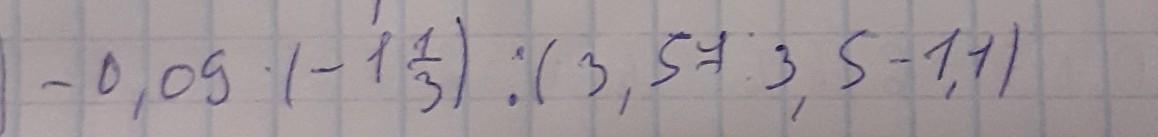 ) -0,09 · (-1 1/3) : (3,57 : 3,5 - 1,1)